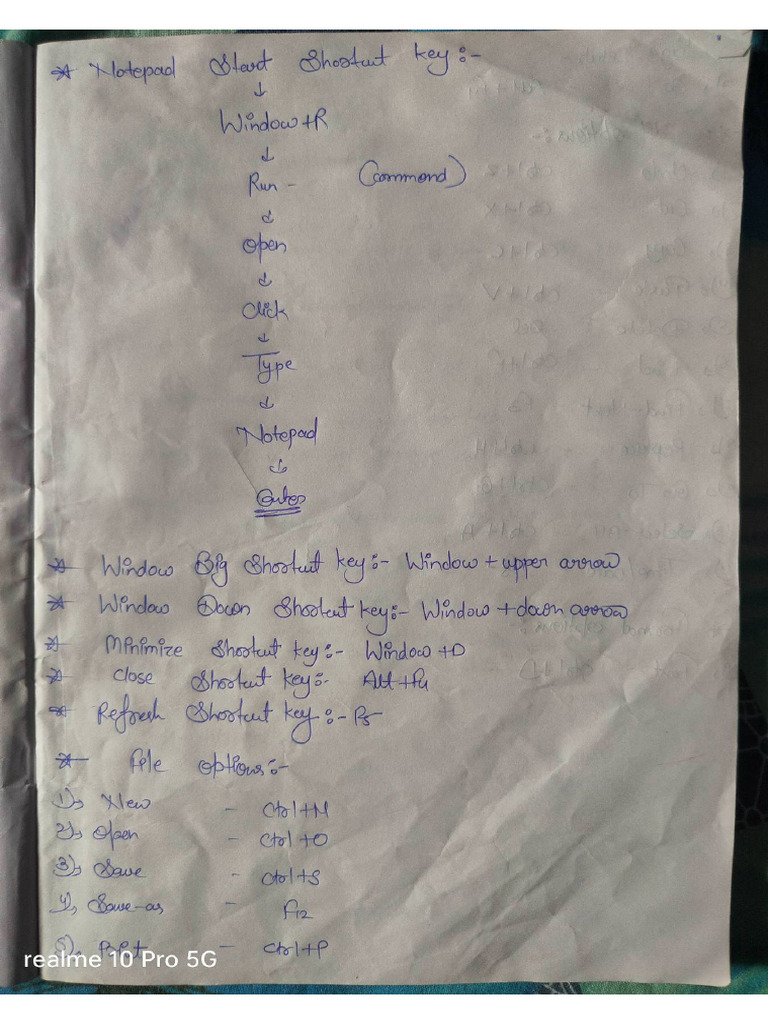 * Notepad Start Shortcut key:-
↓
Window+R
↓
Run - (Command)
↓
Open
↓
Click
↓
Type
↓
Notepad
↓
Enter
* Window Big Shortcut key:- Window + upper arrow
* Window Down Shortcut key:- Window + down arrow
* Minimize Shortcut key:- Window +D
* Close Shortcut key:- Alt+F4
* Refresh Shortcut key:- F5
* File options:-
1) New - Ctrl+N
2) Open - Ctrl+O
3) Save - Ctrl+S
4) Save-as - F12
5) Print - Ctrl+P
realme 10 Pro 5G